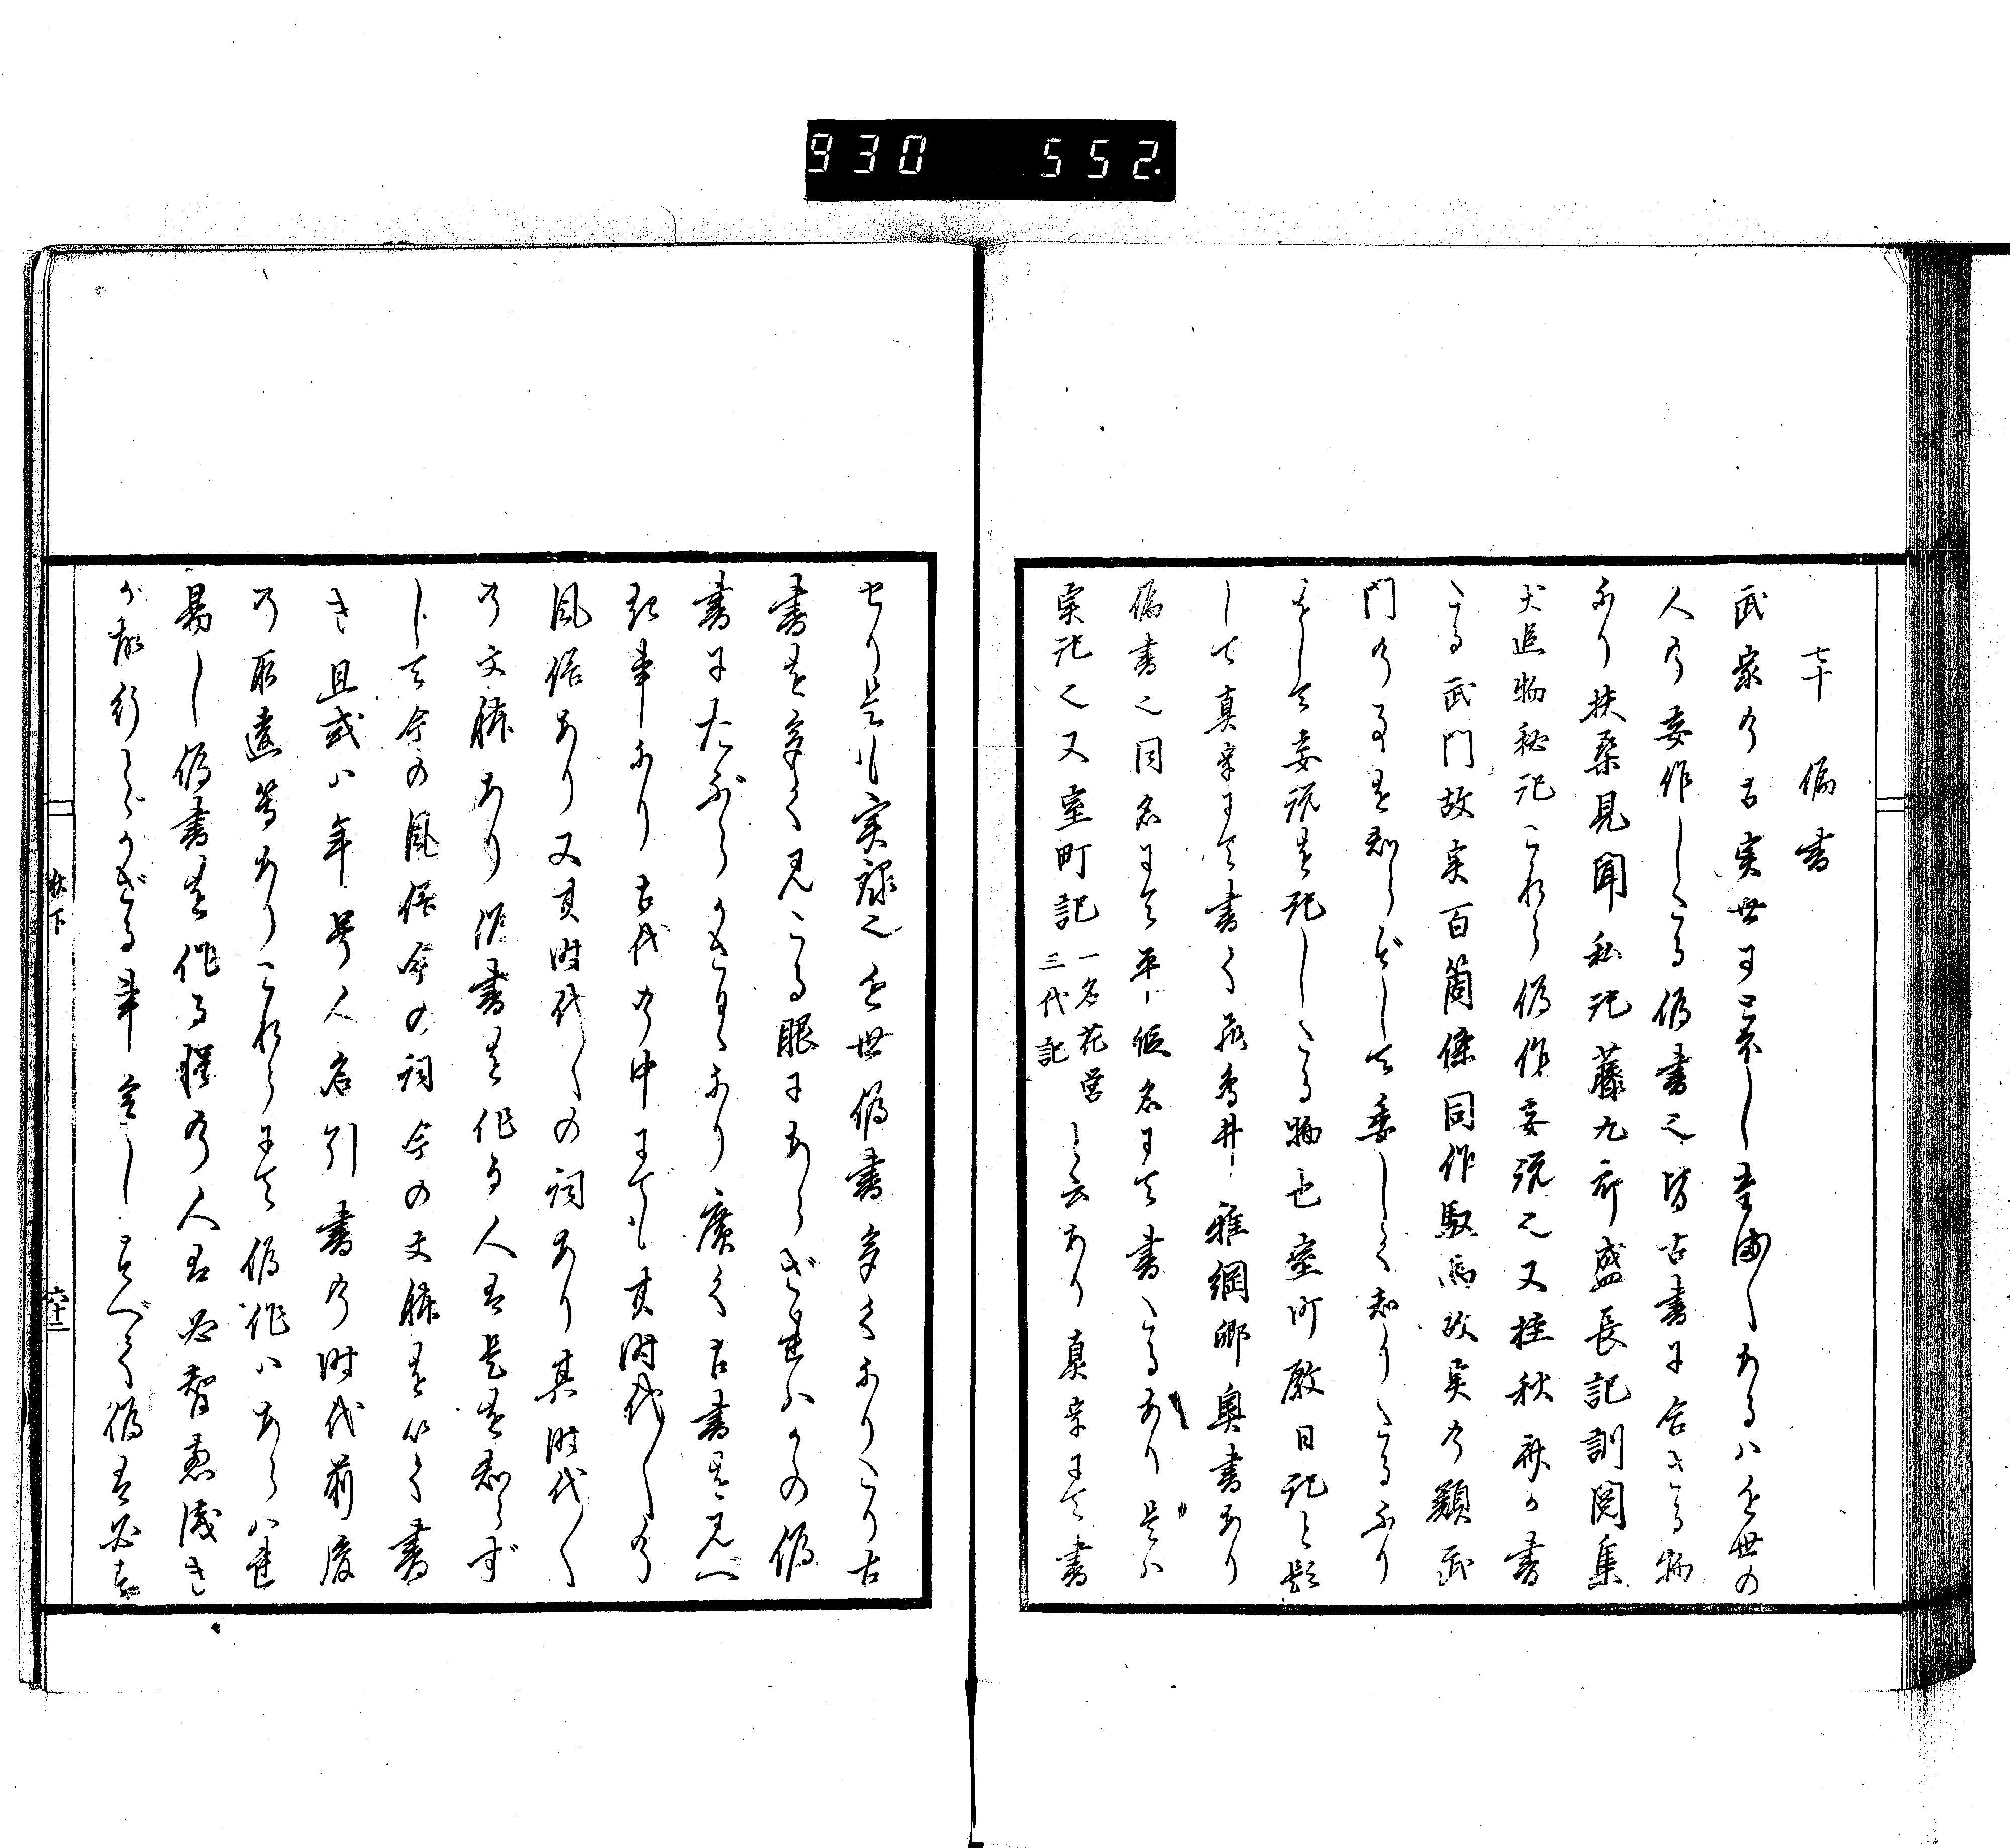 930 552.
七十 偽書
武家の古実世に乏しく
人の妄作したる偽書也皆古書に合ざる物
なり扶桑見聞私記藤九郎盛長記訓閲集
犬追物秘記これら偽作妄説也又桂秋斎が書
たる武門故実百箇条同作馭馬故実の類武
門の事を知らずして委しく知りたるふり
をして妄説を記したる物也室町殿日記と題
して真字にて書く飛鳥井雅綱卿奥書あり
偽書也同名にて平仮名にて書たるあり是ハ
実記也又室町記
一名花営
三代記
と云あり真字にて書
せり是も実録也近世偽書多くなりたり古
書を多く見たる眼にあらざれハかの偽
書にたぶらかさるゝなり広く古書を見べ
き事なり古代の中にても其時代〳〵の
風俗あり又其時代〳〵の詞あり其時代〳〵
の文体あり偽書を作る人ハ是を知らず
して今の風俗今の詞今の文体を以て書
き且或ハ年号人名引書の時代前後
の取違等ありこれらにて偽作ハあらハれ
易し偽書を作る程の人ハ必智恵浅き
が故行とゞかざる事
秋下
六十二